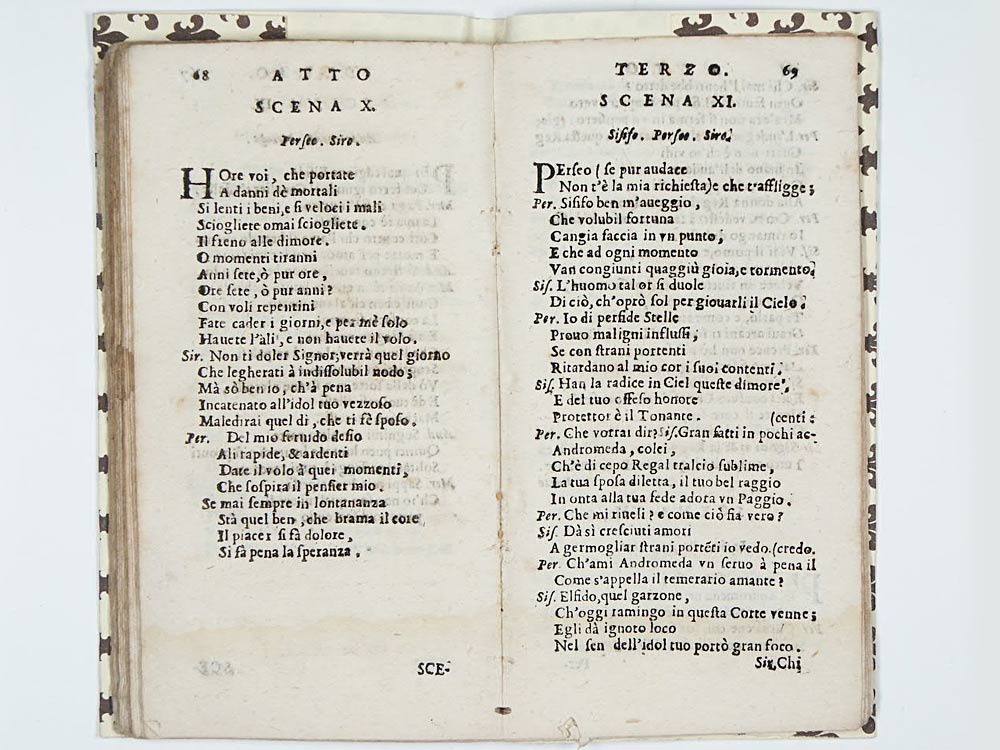 68 ATTO
SCENA X.
Perseo. Siro.
HOre voi, che portate
A danni dè mortali
Si lenti i beni, e si veloci i mali
Sciogliete omai sciogliete.
Il freno alle dimore.
O momenti tiranni
Anni sete, ò pur ore,
Ore sete, ò pur anni?
Con voli repentini
Fate cader i giorni, e per mè solo
Hauete l'ali, e non hauete il volo.
Sir. Non ti doler Signor; verrà quel giorno
Che legherati à indissolubil nodo;
Mà sò ben io, ch'à pena
Incatenato all'idol tuo vezzoso
Maledirai quel dì, che ti fè sposo.
Per. Del mio feruido desio
Ali rapide, & ardenti
Date il volo à quei momenti,
Che sospira il pensier mio.
Se mai sempre in lontananza
Stà quel ben, che brama il core
Il piacer si fà dolore,
Si fà pena la speranza.
SCE-
TERZO. 69
SCENA XI.
Sisifo. Perseo. Siro.
PErseo (se pur audace
Non t'è la mia richiesta) e che t'affligge;
Per. Sisifo ben m'aueggio,
Che volubil fortuna
Cangia faccia in vn punto;
E che ad ogni momento
Van congiunti quaggiù gioia, e tormento.
Sis. L'huomo tal or si duole
Di ciò, ch'oprò sol per giouarli il Cielo.
Per. Io di perfide Stelle
Prouo maligni influssi;
Se con strani portenti
Ritardano al mio cor i suoi contenti.
Sis. Han la radice in Ciel queste dimore,
E del tuo offeso honore
Protettor è il Tonante. (centi:
Per. Che vorrai dir? Sis. Gran fatti in pochi ac-
Andromeda, colei,
Ch'è di cepo Regal tralcio sublime,
La tua sposa diletta, il tuo bel raggio
In onta alla tua fede adora vn Paggio.
Per. Che mi riueli? e come ciò fia vero?
Sis. Dà sì cresciuti amori
A germogliar strani portẽti io vedo. (credo.
Per. Ch'ami Andromeda vn seruo à pena il
Come s'appella il temerario amante?
Sis. Elfido, quel garzone,
Ch'oggi ramingo in questa Corte venne;
Egli dà ignoto loco
Nel sen dell'idol tuo portò gran foco.
Sir. Chi